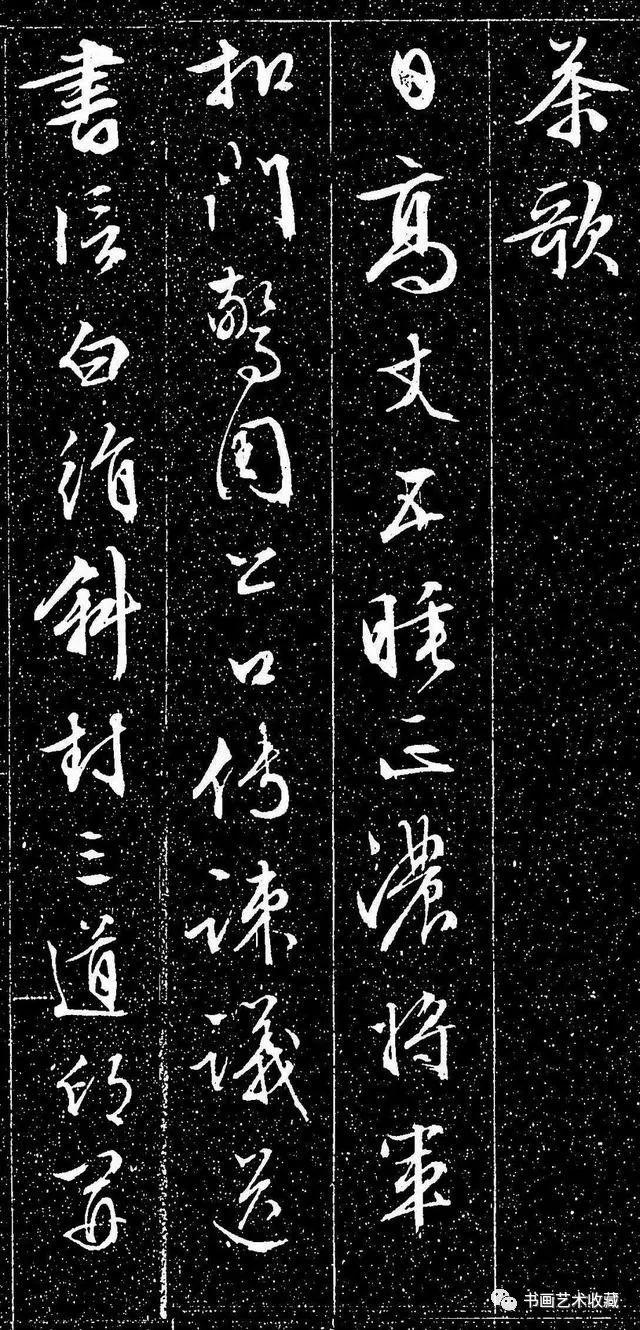 茶歌
日高丈五睡正濃將軍
扣門驚周公口傳諫議送
書信白絹斜封三道印開
书画艺术收藏